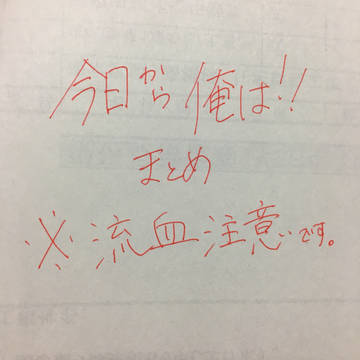 今日から俺は!!
まとめ
※流血注意です。